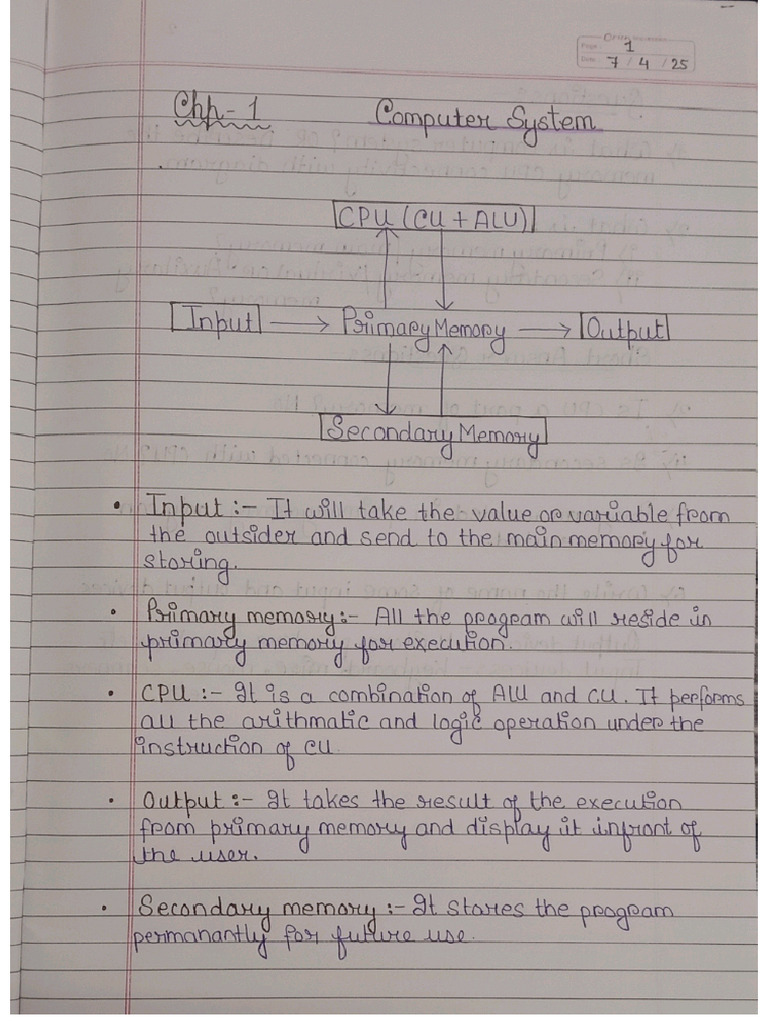 Page: 1
Date: 7 / 4 / 25
Chp-1 Computer System
CPU (CU + ALU)
Input Primary Memory Output
Secondary Memory
• Input :- It will take the value or variable from
the outsider and send to the main memory for
storing.
• Primary memory:- All the program will reside in
primary memory for execution.
• CPU :- It is a combination of ALU and CU. It performs
all the arithmatic and logic operation under the
instruction of CU.
• Output :- It takes the result of the execution
from primary memory and display it infront of
the user.
• Secondary memory :- It stores the program
permanantly for future use.